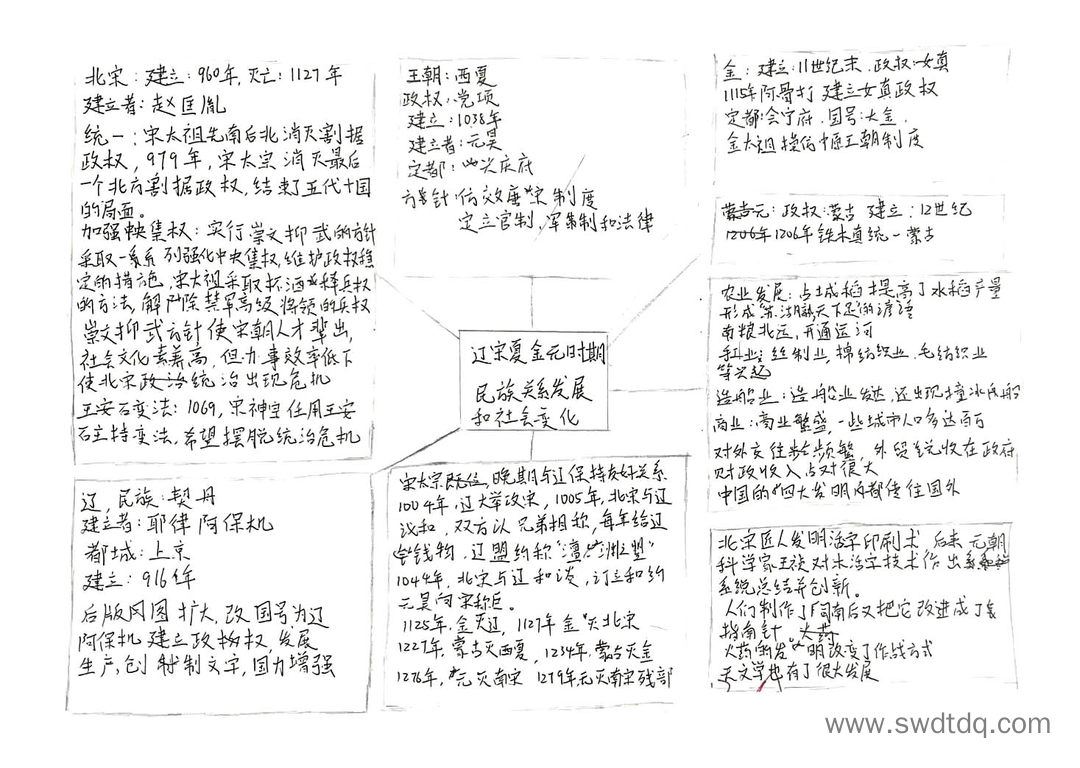 北宋：建立：960年，灭亡：1127年
建立者：赵匡胤
统一：宋太祖先南后北消灭割据
政权，979年，宋太宗消灭最后
一个北方割据政权，结束了五代十国
的局面。
加强中央集权：实行崇文抑武的方针
采取一系列强化中央集权，维护政权稳
定的措施，宋太祖采取杯酒释兵权
的方法，解除禁军高级将领的兵权
崇文抑武方针使宋朝人才辈出，
社会文化素养高，但办事效率低下
使北宋政治统治出现危机
王安石变法：1069，宋神宗任用王安
石主持变法，希望摆脱统治危机
王朝：西夏
政权：党项
建立：1038年
建立者：元昊
定都：兴庆府
方针：仿效唐宋制度
定立官制，军制和法律
金：建立：11世纪末，政权：女真
1115年阿骨打建立女真政权
定都：会宁府，国号：大金
金太祖模仿中原王朝制度
蒙古元：政权：蒙古 建立：12世纪
1206年1206年铁木真统一蒙古
辽宋夏金元时期
民族关系发展
和社会变化
农业发展：占城稻提高了水稻产量
形成"苏湖熟天下足"的谚语
南粮北运，开通运河
手工业：丝制业，棉纺织业，毛纺织业
等兴起
造船业：造船业发达，还出现
商业：商业繁盛，一些城市人口多达百万
对外交往频繁，外贸税收在政府
财政收入占对很大
中国的"四大发明"都传往国外
辽，民族：契丹
建立者：耶律阿保机
都城：上京
建立：916年
后版图扩大，改国号为辽
阿保机建立政权，发展
生产，创制文字，国力增强
宋太宗既位，晚期与辽保持友好关系
1004年，辽大举攻宋，1005年，北宋与辽
议和，双方以兄弟相称，每年给辽
钱物，辽盟约称"澶渊之盟"
1044年，北宋与辽和谈，订立和约
元昊向宋称臣。
1125年，金灭辽，1127年金灭北宋
1227年，蒙古灭西夏，1234年，蒙古灭金
1276年，元灭南宋 1279年元灭南宋残部
北宋匠人发明活字印刷术 后来元朝
科学家王祯对木活字技术作出
系统总结并创新。
人们制作了司南后又把它改进成了
指南针。火药
火药的发明改变了作战方式
天文学也有了很大发展
www.swdtdq.com